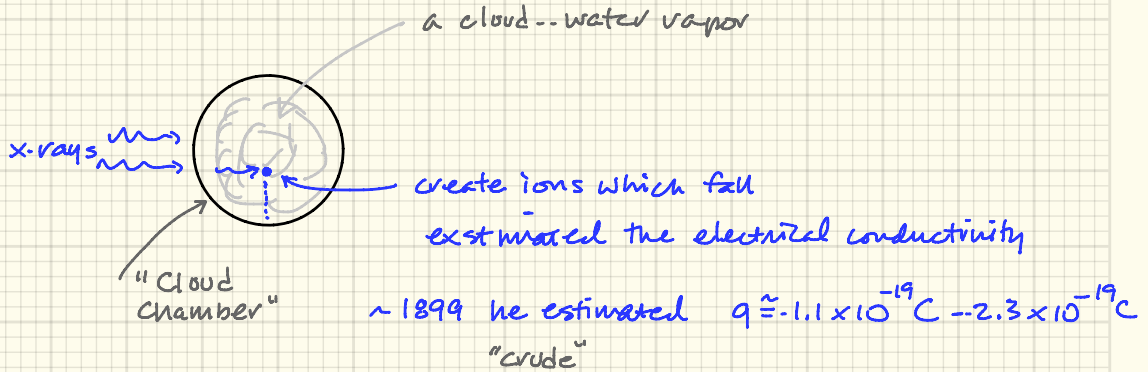 a cloud -- water vapor
x-rays
create ions which fall
exstmiated the electrical conductivity
"Cloud
Chamber"
~ 1899 he estimated q ≅ -1.1 x 10⁻¹⁹ C -- 2.3 x 10⁻¹⁹ C
"crude"